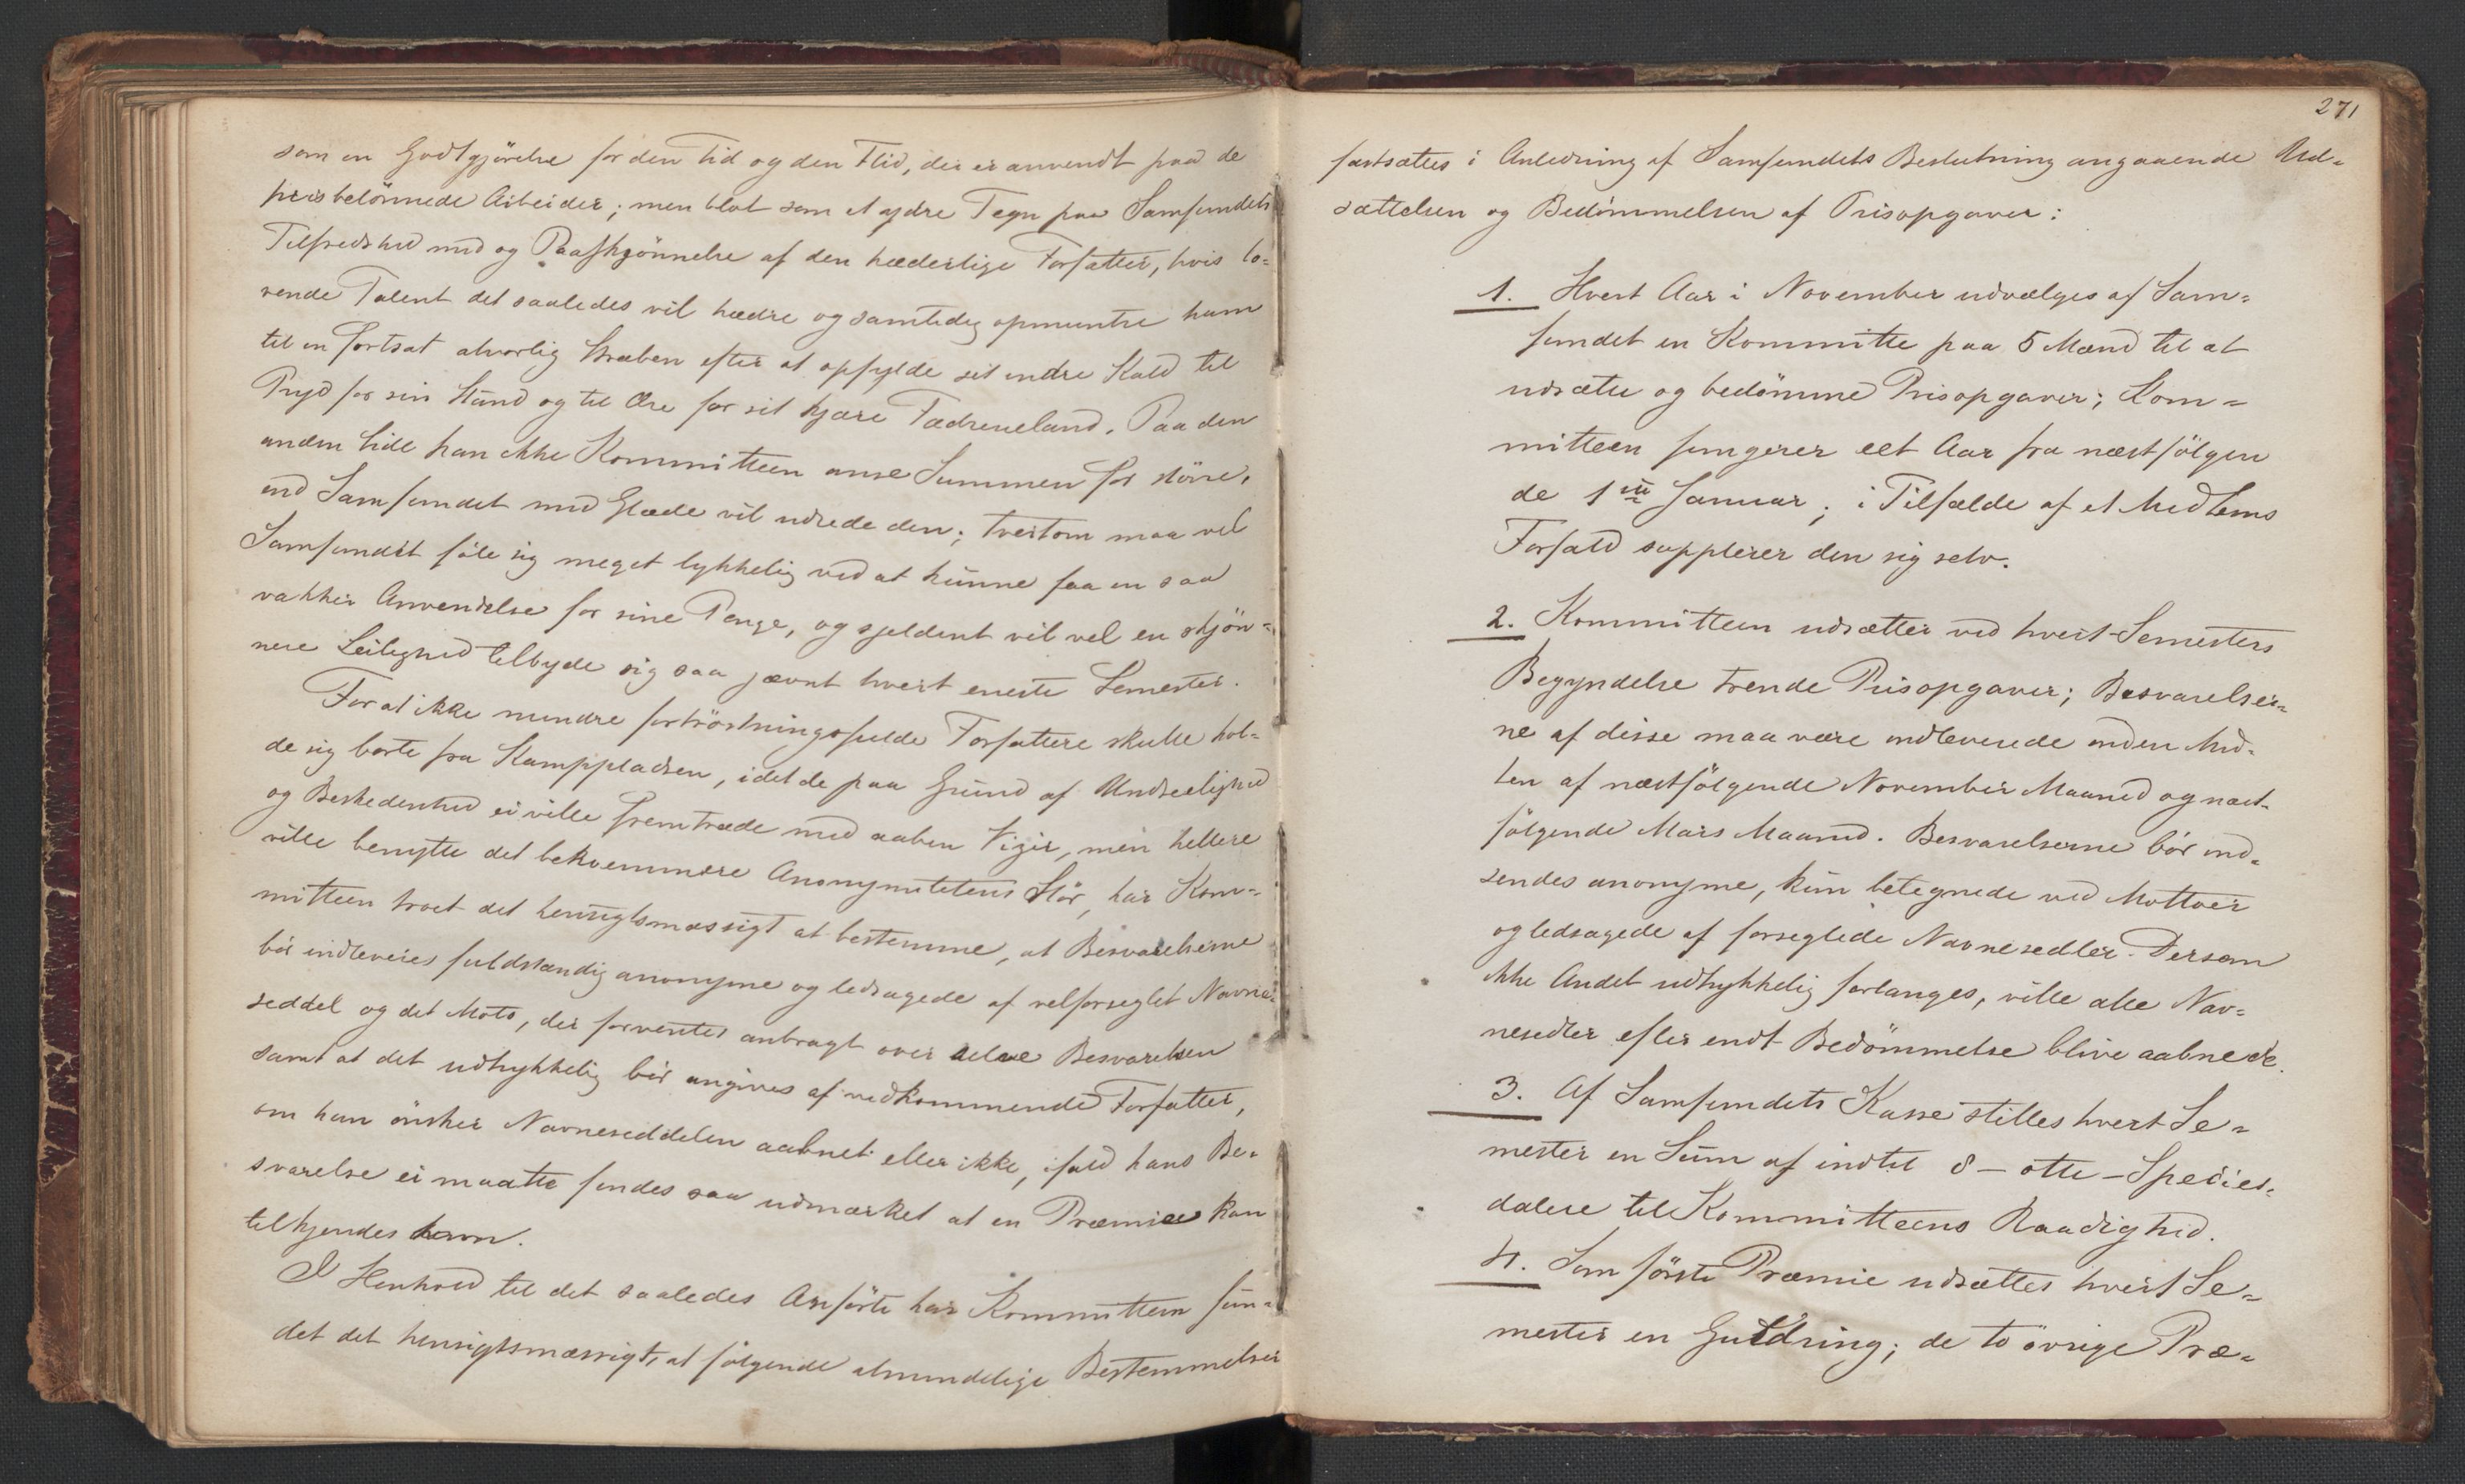 som en Godtgjörelse for den Tid og den Flid, der er anvendt paa de
prisbelönnede Arbeider; men blot som et ydre Tegn paa Samfundets
Tilfredshed med og Paaskjönnelse af den hæderlige Forfatter, hvis lo-
vende Talent det saaledes vil hædre og samtidig opmuntre ham
til en fortsat alvorlig Stræben efter at opfylde sit indre Kald til
Pryd for sin Stand og til Ære for sit kjære Fædreneland. Paa den
anden Side kan ikke Kommitteen anse Summen for större,
end Samfundet med Glæde vil udrede den; tvertom maa vel
Samfundet föle sig meget lykkelig ved at kunne faa en saa
vakker Anvendelse for sine Penge, og sjeldent vil vel en skjön-
nere Leilighed tilbyde sig saa jævnt hvert eneste Semester.
For at ikke mindre fortröstningsfulde Forfattere skulle hol-
de sig borte fra Kamppladsen, idet de paa Grund af Undseelighed
og Beskedenhed ei ville fremtræde med aaben Vizir, men hellere
ville benytte det bekvemmere Anonymitetens Slör, har Kom-
mitteen troet det hensigtsmæssigt at bestemme, at Besvarelserne
bör indleveres fuldstændig anonyme og ledsagede af velforseglet Navne-
seddel og det Moto, der forventes anbragt over selve Besvarelsen
samt at det udtrykkelig bör angives af vedkommende Forfatter,
om han önsker Navneseddelen aabnet eller ikke, ifald hans Be-
svarelse ei maatte findes saa udmærket at en Præmie kan
tilkjendes ham.
I Henhold til det saaledes Anförte har Kommitteen fun-
det det hensigtsmæssigt, at fölgende almindelige Bestemmelser
271
fastsættes i Anledning af Samfundets Beslutning angaaende Ud-
sættelsen og Bedömmelsen af Prisopgaver:
1. Hvert Aar i November udvælges af Sam-
fundet en Kommitte paa 5 Mænd til at
udsætte og bedömme Prisopgaver; Kom-
mitteen fungerer eet Aar fra næstfölgen
de 1ste Januar; i Tilfælde af et Medlems
Forfald supplerer den sig selv.
2. Kommitteen udsætter ved hvert Semesters
Begyndelse trende Prisopgaver; Besvarelser-
ne af disse maa være indleverede inden Mid-
ten af næstfölgende November Maaned og næst-
fölgende Mars Maaned. Besvarelserne bör ind-
sendes anonyme, kun betegnede ved Mottoer
og ledsagede af forseglede Navnesedler. Dersom
ikke Andet udtrykkelig forlanges, ville alle Nav-
nesedler efter endt Bedömmelse blive aabnede.
3. Af Samfundets Kasse stilles hvert Se-
mester en Sum af indtil 8 – otte – Species-
dalere til Kommitteens Raadighed.
4. Som förste Præmie udsættes hvert Se-
mester en Guldring; de to övrige Præ-